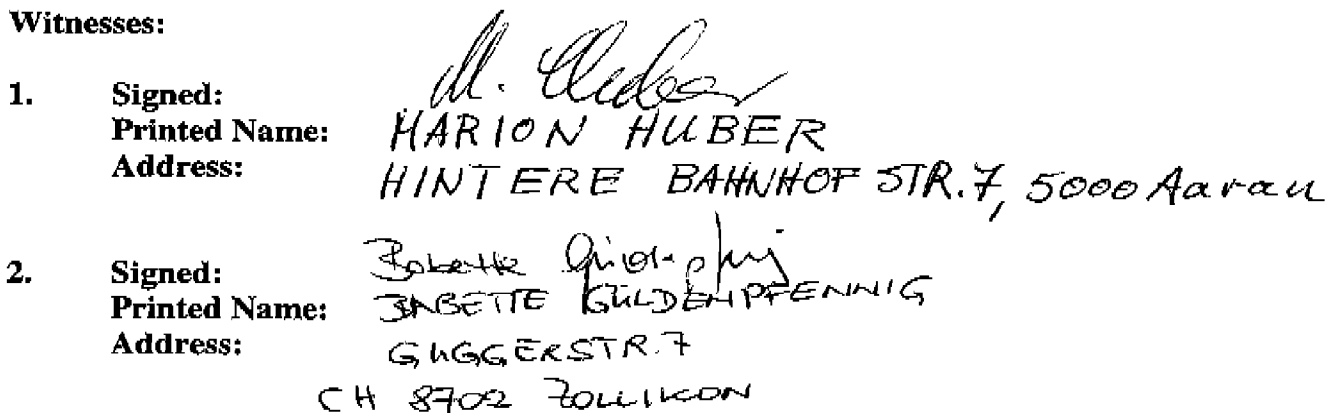 Witnesses:
1. Signed: M. Huber
Printed Name: MARION HUBER
Address: HINTERE BAHNHOF STR. 7, 5000 Aarau
2. Signed: Babette
Printed Name: BABETTE GÜLDENPFENNIG
Address: GUGGERSTR. 7
CH 8702 ZOLLIKON